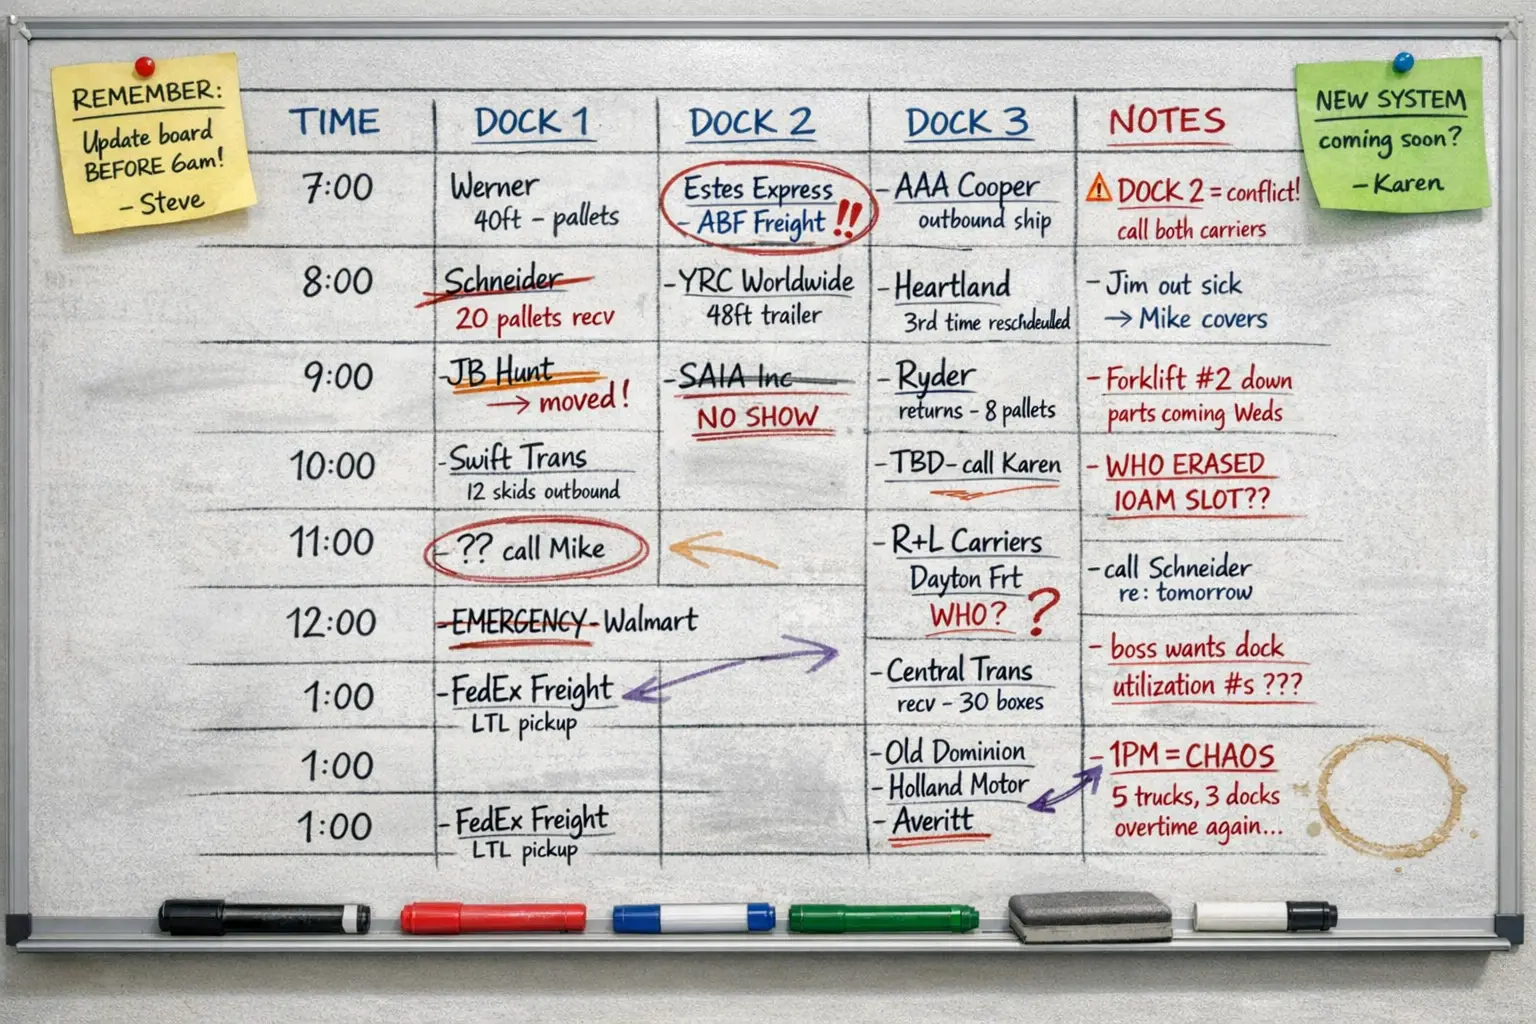 REMEMBER:
Update board
BEFORE 6am!
- Steve
NEW SYSTEM
coming soon?
- Karen
TIME
DOCK 1
DOCK 2
DOCK 3
NOTES
7:00
Werner
40ft - pallets
Estes Express
- ABF Freight !!
- AAA Cooper
outbound ship
⚠ DOCK 2 = conflict!
call both carriers
8:00
Schneider
20 pallets recv
- YRC Worldwide
48ft trailer
- Heartland
3rd time reschdeulled
- Jim out sick
→ Mike covers
9:00
- JB Hunt
→ moved!
- SAIA Inc
NO SHOW
- Ryder
returns - 8 pallets
- Forklift #2 down
parts coming Weds
10:00
- Swift Trans
12 skids outbound
- TBD - call Karen
- WHO ERASED
10AM SLOT??
11:00
- ?? call Mike
- R+L Carriers
Dayton Frt
WHO? ?
- call Schneider
re: tomorrow
12:00
- EMERGENCY - Walmart
- boss wants dock
utilization #s ???
1:00
- FedEx Freight
LTL pickup
- Central Trans
recv - 30 boxes
1:00
- Old Dominion
- Holland Motor
- 1PM = CHAOS
5 trucks, 3 docks
overtime again...
1:00
- FedEx Freight
LTL pickup
- Averitt